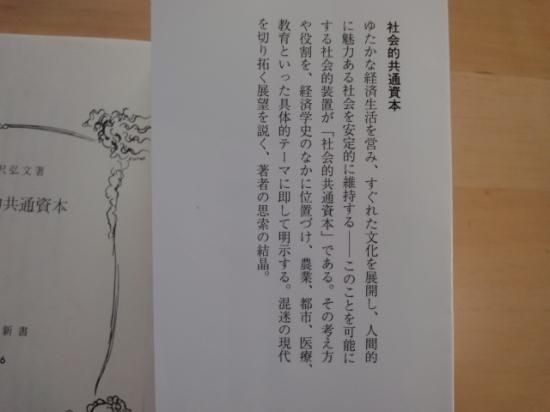 社会的共通資本
ゆたかな経済生活を営み、すぐれた文化を展開し、人間的
に魅力ある社会を安定的に維持する――このことを可能に
する社会的装置が「社会的共通資本」である。その考え方
や役割を、経済学史のなかに位置づけ、農業、都市、医療、
教育といった具体的テーマに即して明示する。混迷の現代
を切り拓く展望を説く、著者の思索の結晶。
沢弘文著
的共通資本
新書
6